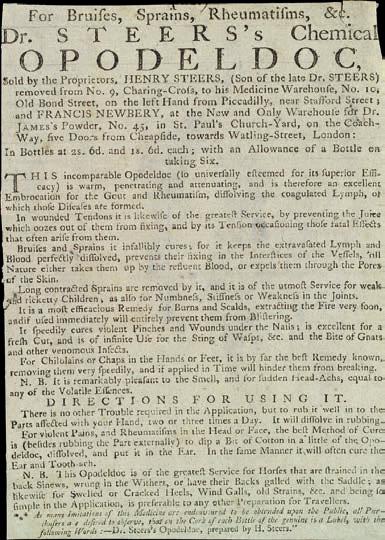 For Bruises, Sprains, Rheumatisms, &c.
Dr. STEERS's Chemical
OPODELDOC,
Sold by the Proprietors, HENRY STEERS, (Son of the late Dr. STEERS)
removed from No. 9, Charing-Cross, to his Medicine Warehouse, No. 10,
Old Bond Street, on the left Hand from Piccadilly, near Stafford Street;
and FRANCIS NEWBERY, at the New and Only Warehouse for Dr.
JAMES's Powder, No. 45, in St. Paul's Church-Yard, on the Coach-
Way, five Doors from Cheapside, towards Watling-Street, London:
In Bottles at 2s. 6d. and 1s. 6d. each; with an Allowance of a Bottle on
taking Six.
THIS incomparable Opodeldoc (so universally esteemed for its superior Effi-
cacy) is warm, penetrating and attenuating, and is therefore an excellent
Embrocation for the Gout and Rheumatism, dissolving the coagulated Lymph, of
which those Diseases are formed.
In wounded Tendons it is likewise of the greatest Service, by preventing the Juice
which oozes out of them from fixing, and by its Tension occasioning those fatal Effects
that often arise from them.
Bruises and Sprains it infallibly cures; for it keeps the extravasated Lymph and
Blood perfectly dissolved, prevents their fixing in the Interstices of the Vessels, 'till
Nature either takes them up by the refluent Blood, or expels them through the Pores
of the Skin.
Long contracted Sprains are removed by it, and it is of the utmost Service for weak
and ricketty Children, as also for Numbness, Stiffness or Weakness in the Joints.
It is a most efficacious Remedy for Burns and Scalds, extracting the Fire very soon,
and if used immediately will entirely prevent them from Blistering.
It speedily cures violent Pinches and Wounds under the Nails; is excellent for a
fresh Cut, and is of infinite Use for the Sting of Wasps, &c. and the Bite of Gnats
and other venomous Insects.
For Chilblains or Chaps in the Hands or Feet, it is by far the best Remedy known,
removing them very speedily, and if applied in Time will hinder them from breaking.
N. B. It is remarkably pleasant to the Smell, and for sudden Head-Achs, equal to
any of the Volatile Essences.
DIRECTIONS FOR USING IT.
There is no other Trouble required in the Application, but to rub it well in to the
Parts affected with your Hand, two or three times a Day. It will dissolve in rubbing.
For violent Pains, and Rheumatisms in the Head or Face, the best Method of Cure
is (besides rubbing the Part externally) to dip a Bit of Cotton in a little of the Opo-
deldoc, dissolved, and put it in the Ear. In the same Manner it will often cure the
Ear and Tooth-ach.
N. B. This Opodeldoc is of the greatest Service for Horses that are strained in the
back Sinews, wrung in the Withers, or have their Backs galled with the Saddle; as
likewise for Swelled or Cracked Heels, Wind Galls, old Strains, &c. and being so
simple in the Application, is preferable to any other Preparation for Travellers.
*** As many Imitations of this Medicine are endeavoured to be obtruded upon the Public, all Pur-
chasers are desired to observe, that on the Cork of each Bottle of the genuine is a Label, with the
following Words:—Dr. Steers's Opodeldoc, prepared by H. Steers."